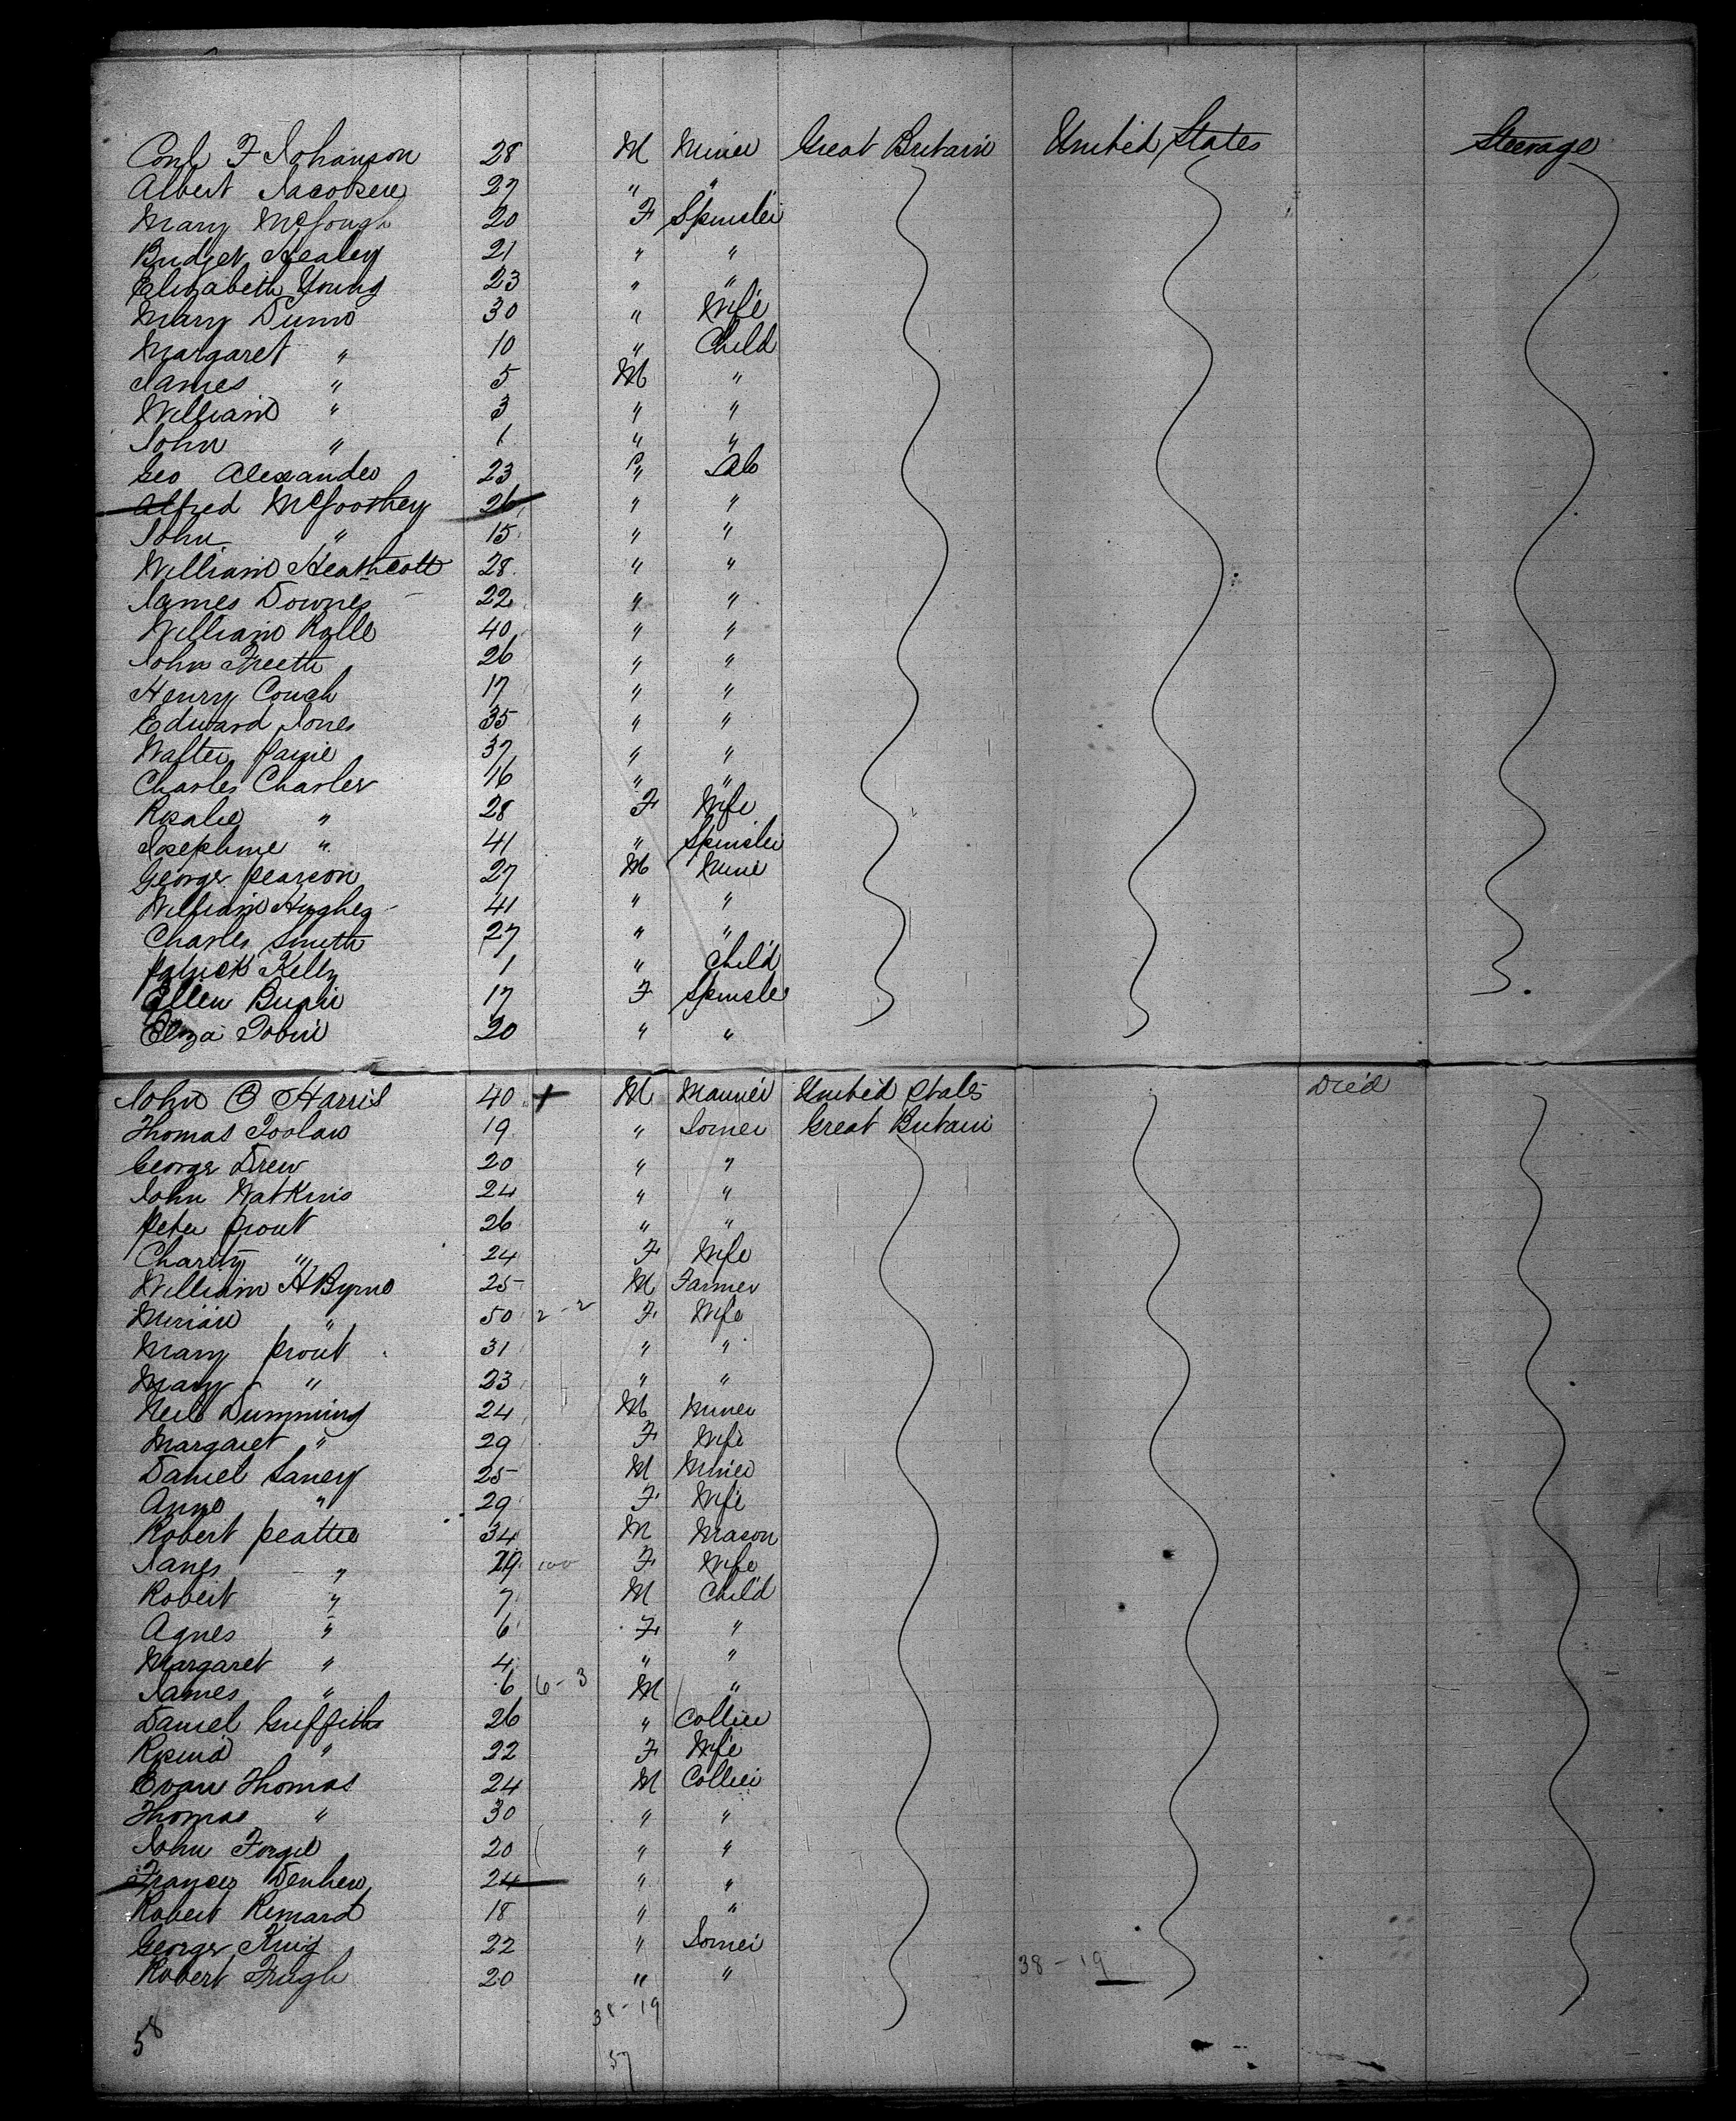 Conl F Johanson 28 M Miner Great Britain United States Steerage
Albert Jacobsen 27 " "
Mary McGough 20 F Spinster
Bridget Healey 21 " "
Elizabeth Young 23 " "
Mary Dunn 30 " Wife
Margaret " 10 " Child
James " 5 M "
William " 3 " "
John " 1 " "
Geo Alexander 23 " Lab
Alfred McGoothey 26 " "
John " 15 " "
William Heathcott 28 " "
James Downes 22 " "
William Rolle 40 " "
John Freeth 26 " "
Henry Couch 17 " "
Edward Jones 35 " "
Walter Paine 37 " "
Charles Charles 16 " "
Rosalie " 28 F Wife
Josephine " 41 " Spinster
George Pearson 27 M Mine
William Hughes 41 " "
Charles Smith 27 " "
Patrick Kelly 1 " Child
Ellen 17 F Spinster
Eliza Tobin 20 " "
John B Harris 40 + M Mariner United States Died
Thomas Toolan 19 " Joiner Great Britain
George Drew 20 " "
John Watkins 24 " "
Peter Prout 26 " "
Charity " 24 F Wife
William H Byrne 25 M Farmer
Miriam " 50 2-2 F Wife
Mary Prout 31 " "
Mary " 23 " "
Neil Dumming 24 M Miner
Margaret " 29 F Wife
Daniel Laney 25 M Miner
Anne " 29 F Wife
Robert Peattie 34 M Mason
Janes " 29 F Wife
Robert " 7 M Child
Agnes " 6 F "
Margaret " 4 " "
James " 6 6-3 M "
Daniel Griffiths 26 " Collier
Rosina " 22 F Wife
Evan Thomas 24 M Collier
Thomas " 30 " "
John Forgie 20 " "
Francis Denhew 24 " "
Robert Rimard 18 " "
George King 22 " Joiner
Robert Frugh 20 " " 38-19
38-19
58
57